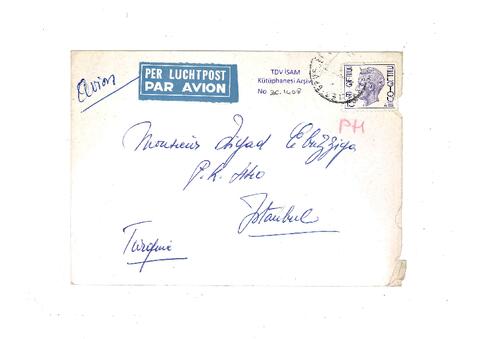 Avion
PER LUCHTPOST
PAR AVION
TDV İSAM
Kütüphanesi Arşivi
No 2C.1408
PH
Monsieur Ziyad Ebüzziya
P.K.
Istanbul
Turquie